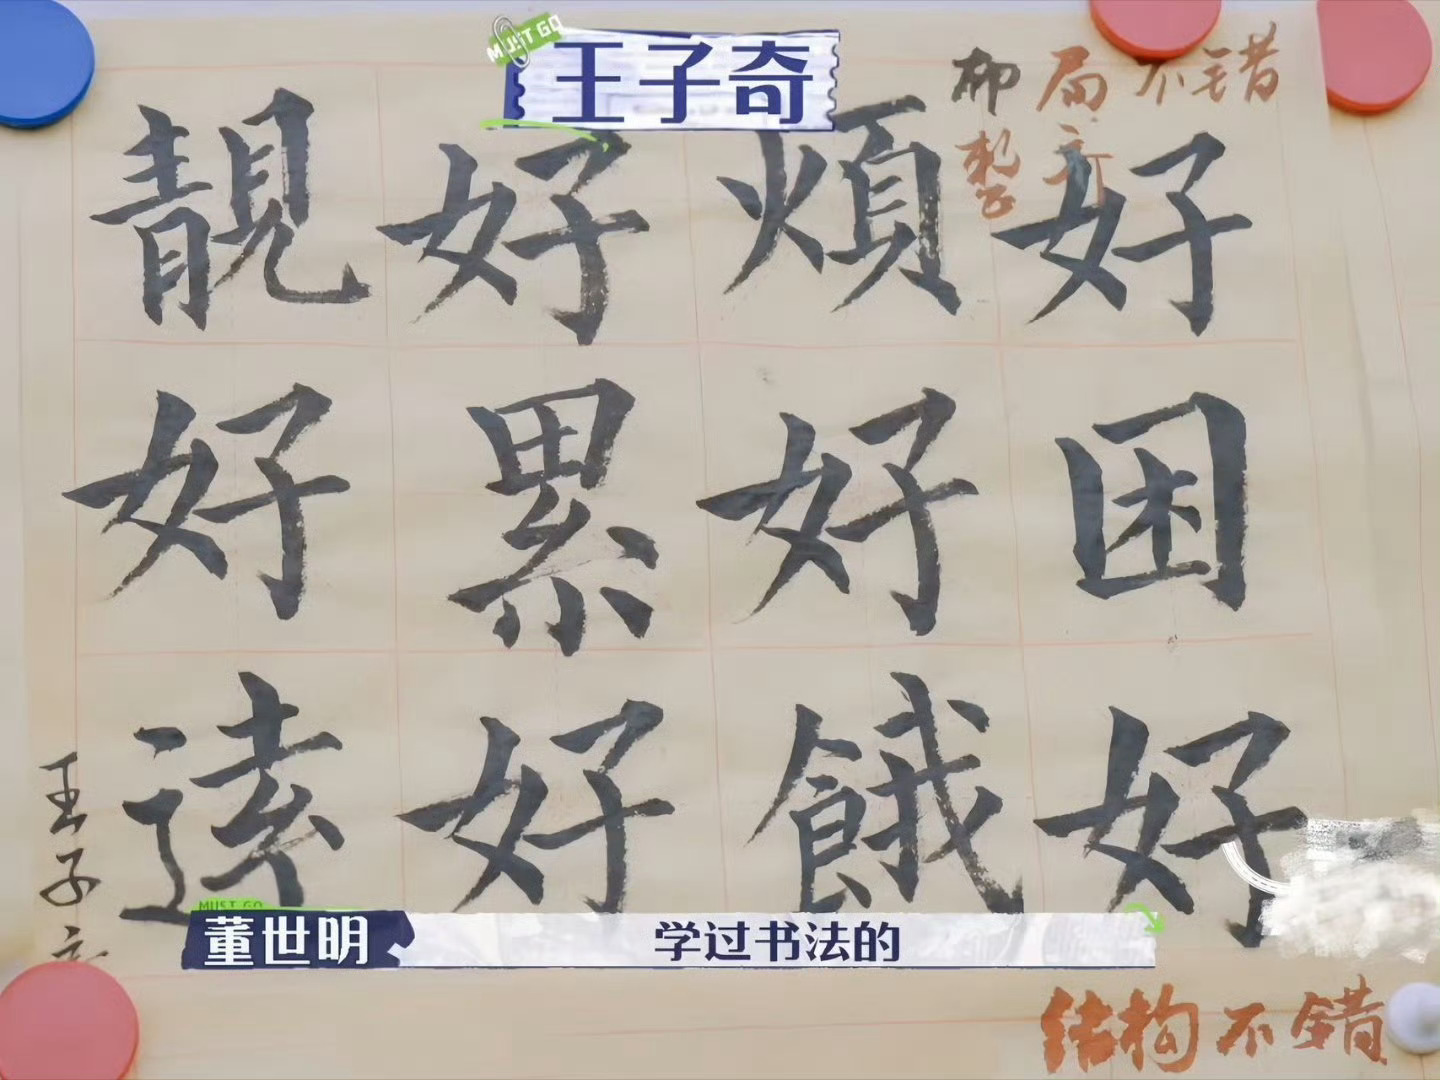 MUST GO
王子奇
局不错
好困好
煩好餓
好累好
靚好逺
王子奇
结构不错
MUST GO
董世明
学过书法的